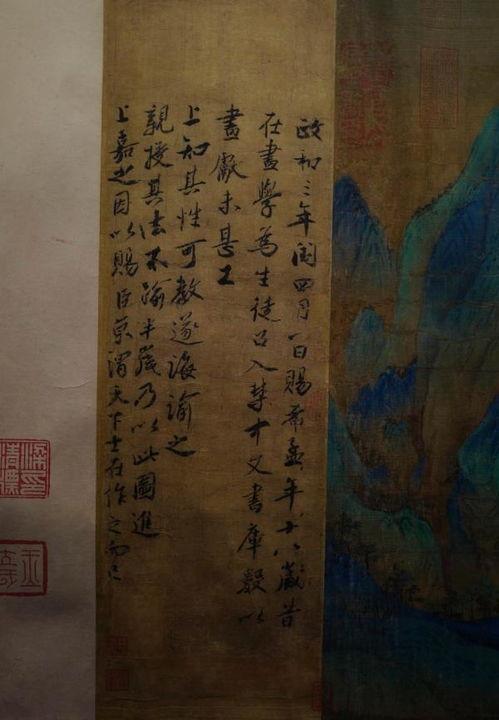 政和三年閏四月八日賜希孟年十八歲昔
在畫學為生徒召入禁中文書庫數以
畫獻未甚工
上知其性可教遂誨諭之
親授其法不踰半歲乃以此圖進
上嘉之因以賜臣京謂天下士在作之而已